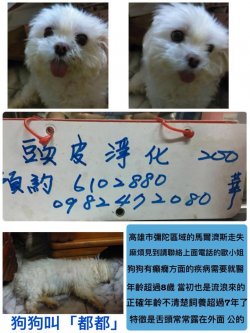 頭皮淨化 200
預約 6102880 華
0982472080
高雄市彌陀區域的馬爾濟斯走失
麻煩見到請聯絡上面電話的歐小姐
狗狗有癲癇方面的疾病需要就醫
年齡超過8歲 當初也是流浪來的
正確年齡不清楚飼養超過7年了
特徵是舌頭常常露在外面 公的
狗狗叫「都都」